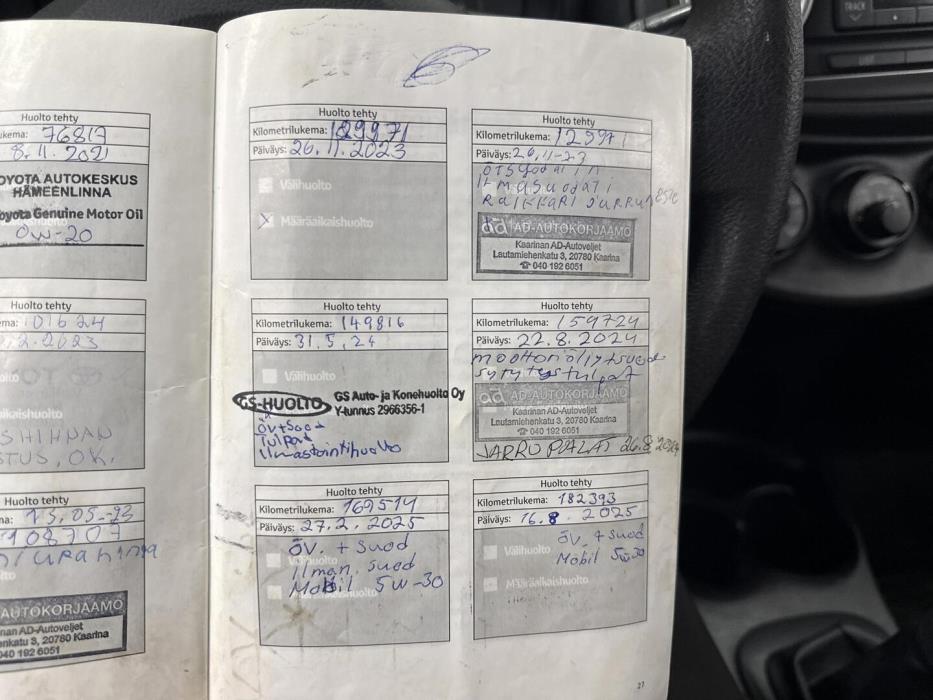 Huolto tehty
ukema: 76817
8.11.2021
OYOTA AUTOKESKUS
HÄMEENLINNA
oyota Genuine Motor Oil
0W-20
Huolto tehty
ma: 101624
.2.2023
aikaishuolto
SHIHNAN
STUS, OK.
Huolto tehty
na: 15.05-23
108707
AUTOKORJAAMO
nan AD-Autoveljet
enkatu 3, 20780 Kaarina
040 192 6051
Huolto tehty
Kilometrilukema: 129971
Päiväys: 26.11.2023
Välihuolto
Määräaikaishuolto
Huolto tehty
Kilometrilukema: 129971
Päiväys: 26.11-23
ÖTSYODATIN
ILMASUODATI
RAIKKARI JARRUNESTE
ad AD-AUTOKORJAAMO
Kaarinan AD-Autoveljet
Lautamiehenkatu 3, 20780 Kaarina
☎ 040 192 6051
Huolto tehty
Kilometrilukema: 149816
Päiväys: 31.5.24
Välihuolto
GS-HUOLTO
GS Auto- ja Konehuolto Oy
Y-tunnus 2966356-1
öv+suod
Tulpat
Ilmastointihuolto
Huolto tehty
Kilometrilukema: 159724
Päiväys: 22.8.2024
moottoriöljy+suod
sytytystulpat
ad AD-AUTOKORJAAMO
Kaarinan AD-Autoveljet
Lautamiehenkatu 3, 20780 Kaarina
☎ 040 192 6051
JARRUPALAT 26.8.2024
Huolto tehty
Kilometrilukema: 169514
Päiväys: 27.2.2025
öv. + suod
Ilman. suod
Mobil 5W-30
Huolto tehty
Kilometrilukema: 182393
Päiväys: 16.8.2025
Välihuolto
öv. + suod
Mobil 5W30
Määräaikaishuolto
27
TRACK